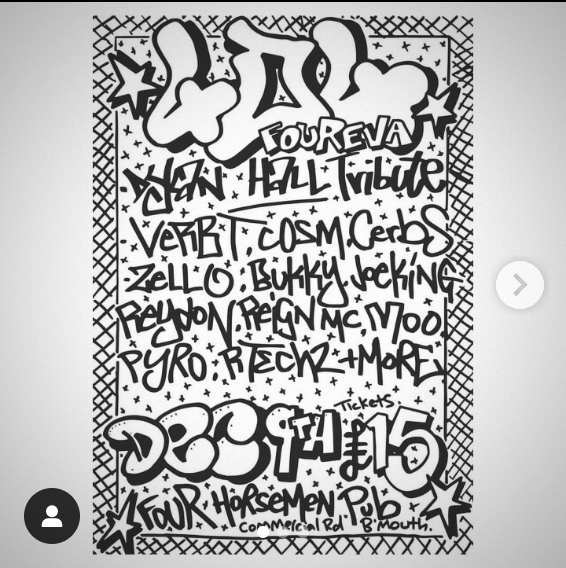 LDL
FOUREVA
DyLAN HALL Tribute
VERBT. COSM. CerbS
ZELLO. BUKKY. JoeKiNG
ReydoN. REIGN MC. Moo.
PYRO. P.TECHZ + MORE
Tickets
DEC 9TH £15
FOUR HORSEMEN Pub
Commercial Rd B'Mouth.